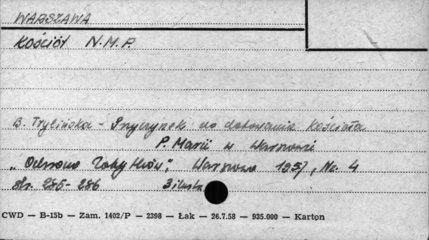 WARSZAWA
Kościół N.M.P.
B. Trylińska - Przyczynek do datowania kościoła
P. Marii w Warszawie
„Ochrona Zabytków", Warszawa 1957, Nr. 4
str. 285-286
CWD — B-15b — Zam. 1402/P — 2398 — Łak — 26.7.58 — 935.000 — Karton